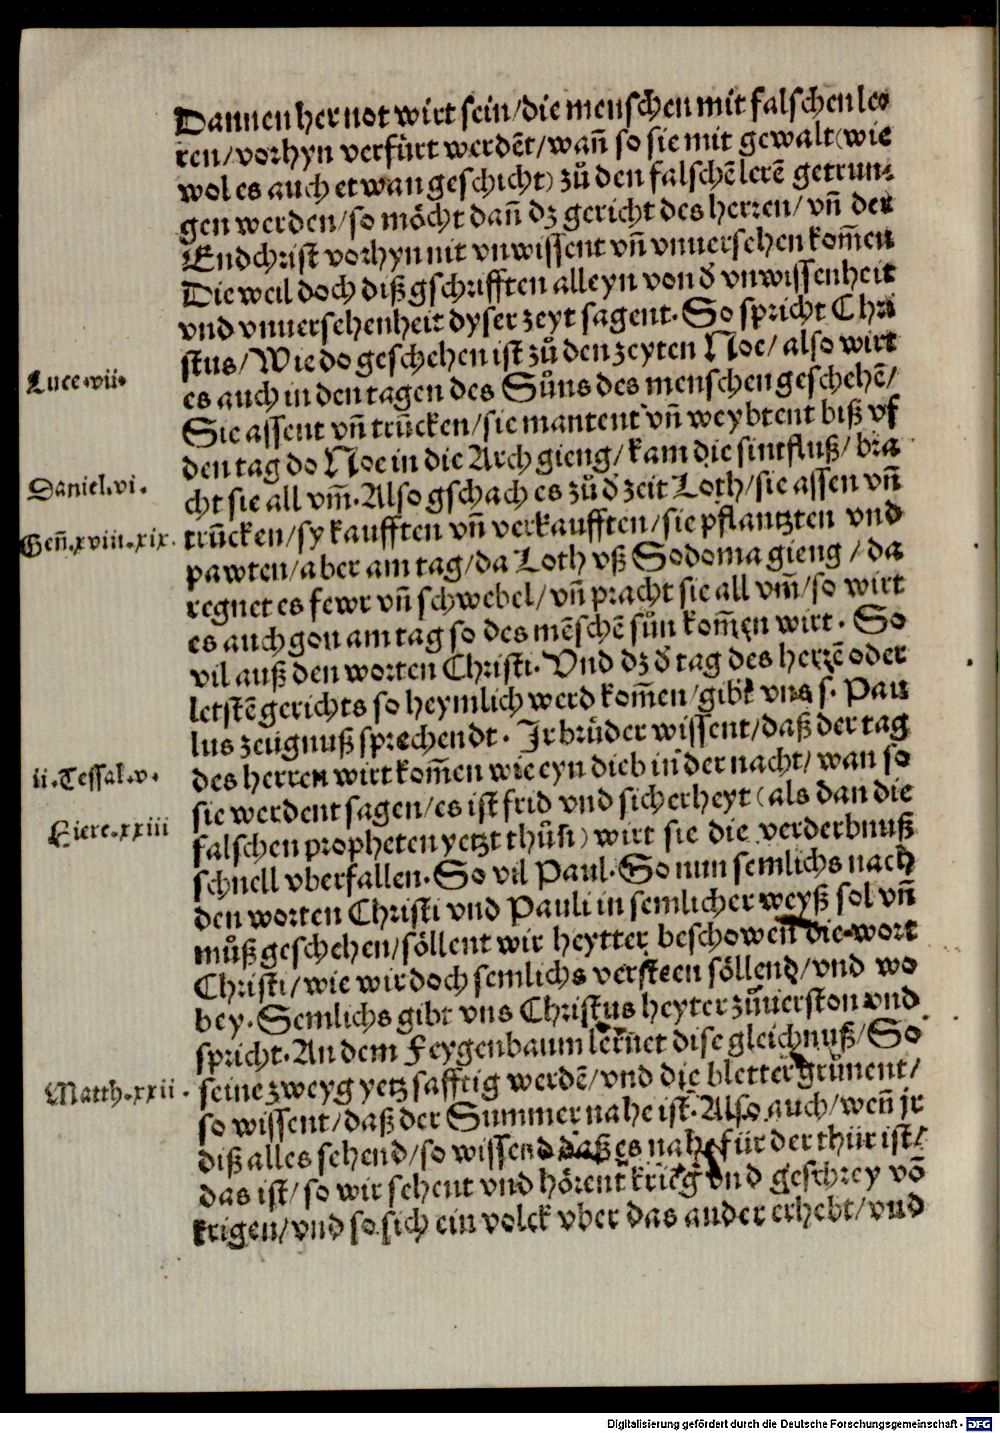 Dannen her not wirt sein/die menschen mit falschen le⸗
ren/vorhyn verfürt werdẽt/wañ so sie mit gewalt (wie
wol es auch etwan geschicht) zů den falschẽ lerẽ getrun⸗
gen werden/so möcht dañ dz gericht des herren/vñ der
Endchrist vorhyn nit vnwissent vñ vnuersehen kom̃en
Die weil doch diß gschrifften alleyn von d̕ vnwissenheit
vnd vnuersehenheit dyser zeyt sagent. So spricht Chri
stus/Wie do geschehen ist zů den zeyten Noe/also wirt
Luce.vii.
es auch in den tagen des Sůns des menschen geschehẽ/
Sie assent vñ trũcken/sie mantent vñ weybtent biß vf
den tag do Noe in die Arch gieng/kam die sintfluß/bra
Daniel.vi.
cht sie all vm̃. Also gschach es zů d̕ zeit Loth/sie assen vñ
Geñ.xviii.xix.
trũcken/sy kaufften vñ verkaufften/sie pflantzten vnd
pawten/aber am tag/da Loth vß Sodoma gieng/da
regnet es fewr vñ schwebel/vñ pracht sie all vm̃/so wirt
es auch gon am tag so des mẽschẽ sůn kom̃en wirt. So
vil auß den worten Christi. Vnd dz d̕ tag des herrẽ oder
letstẽ gerichts so heymlich werd kom̃en/gibt vns s. Pau
lus zeugnuß sprechendt. Jr brůder wissent/daß der tag
ii.Tessal.v.
des herren wirt kom̃en wie eyn dieb in der nacht/wan so
sie werdent sagen/es ist frid vnd sicherheyt (als dan die
Eiere.xxiii
falschen propheten yetzt thůn) wirt sie die verderbnuß
schnell vberfallen. So vil Paul. So nun semlichs nach
den worten Christi vnd Pauli in semlicher weyß sol vñ
můß geschehen/söllent wir heytter beschowen die wort
Christi/wie wir doch semlichs versteen söllend/vnd wo
bey. Semlichs gibt vns Christus heyter zůuerston vnd
spricht. An dem Feygenbaum lernet dise gleichnuß/So
Matth.xxii.
seine zweyg yetz safftig werdẽ/vnd die bletter grünent/
so wissent/daß der Summer nahe ist. Also auch/weñ jr
diß alles sehend/so wissend daß es nahe für der thür ist/
das ist/so wir sehent vnd hörent krieg vnd geschrey võ
krigen/vnd so sich ein volck vber das ander erhebt/vnd
Digitalisierung gefördert durch die Deutsche Forschungsgemeinschaft - DFG